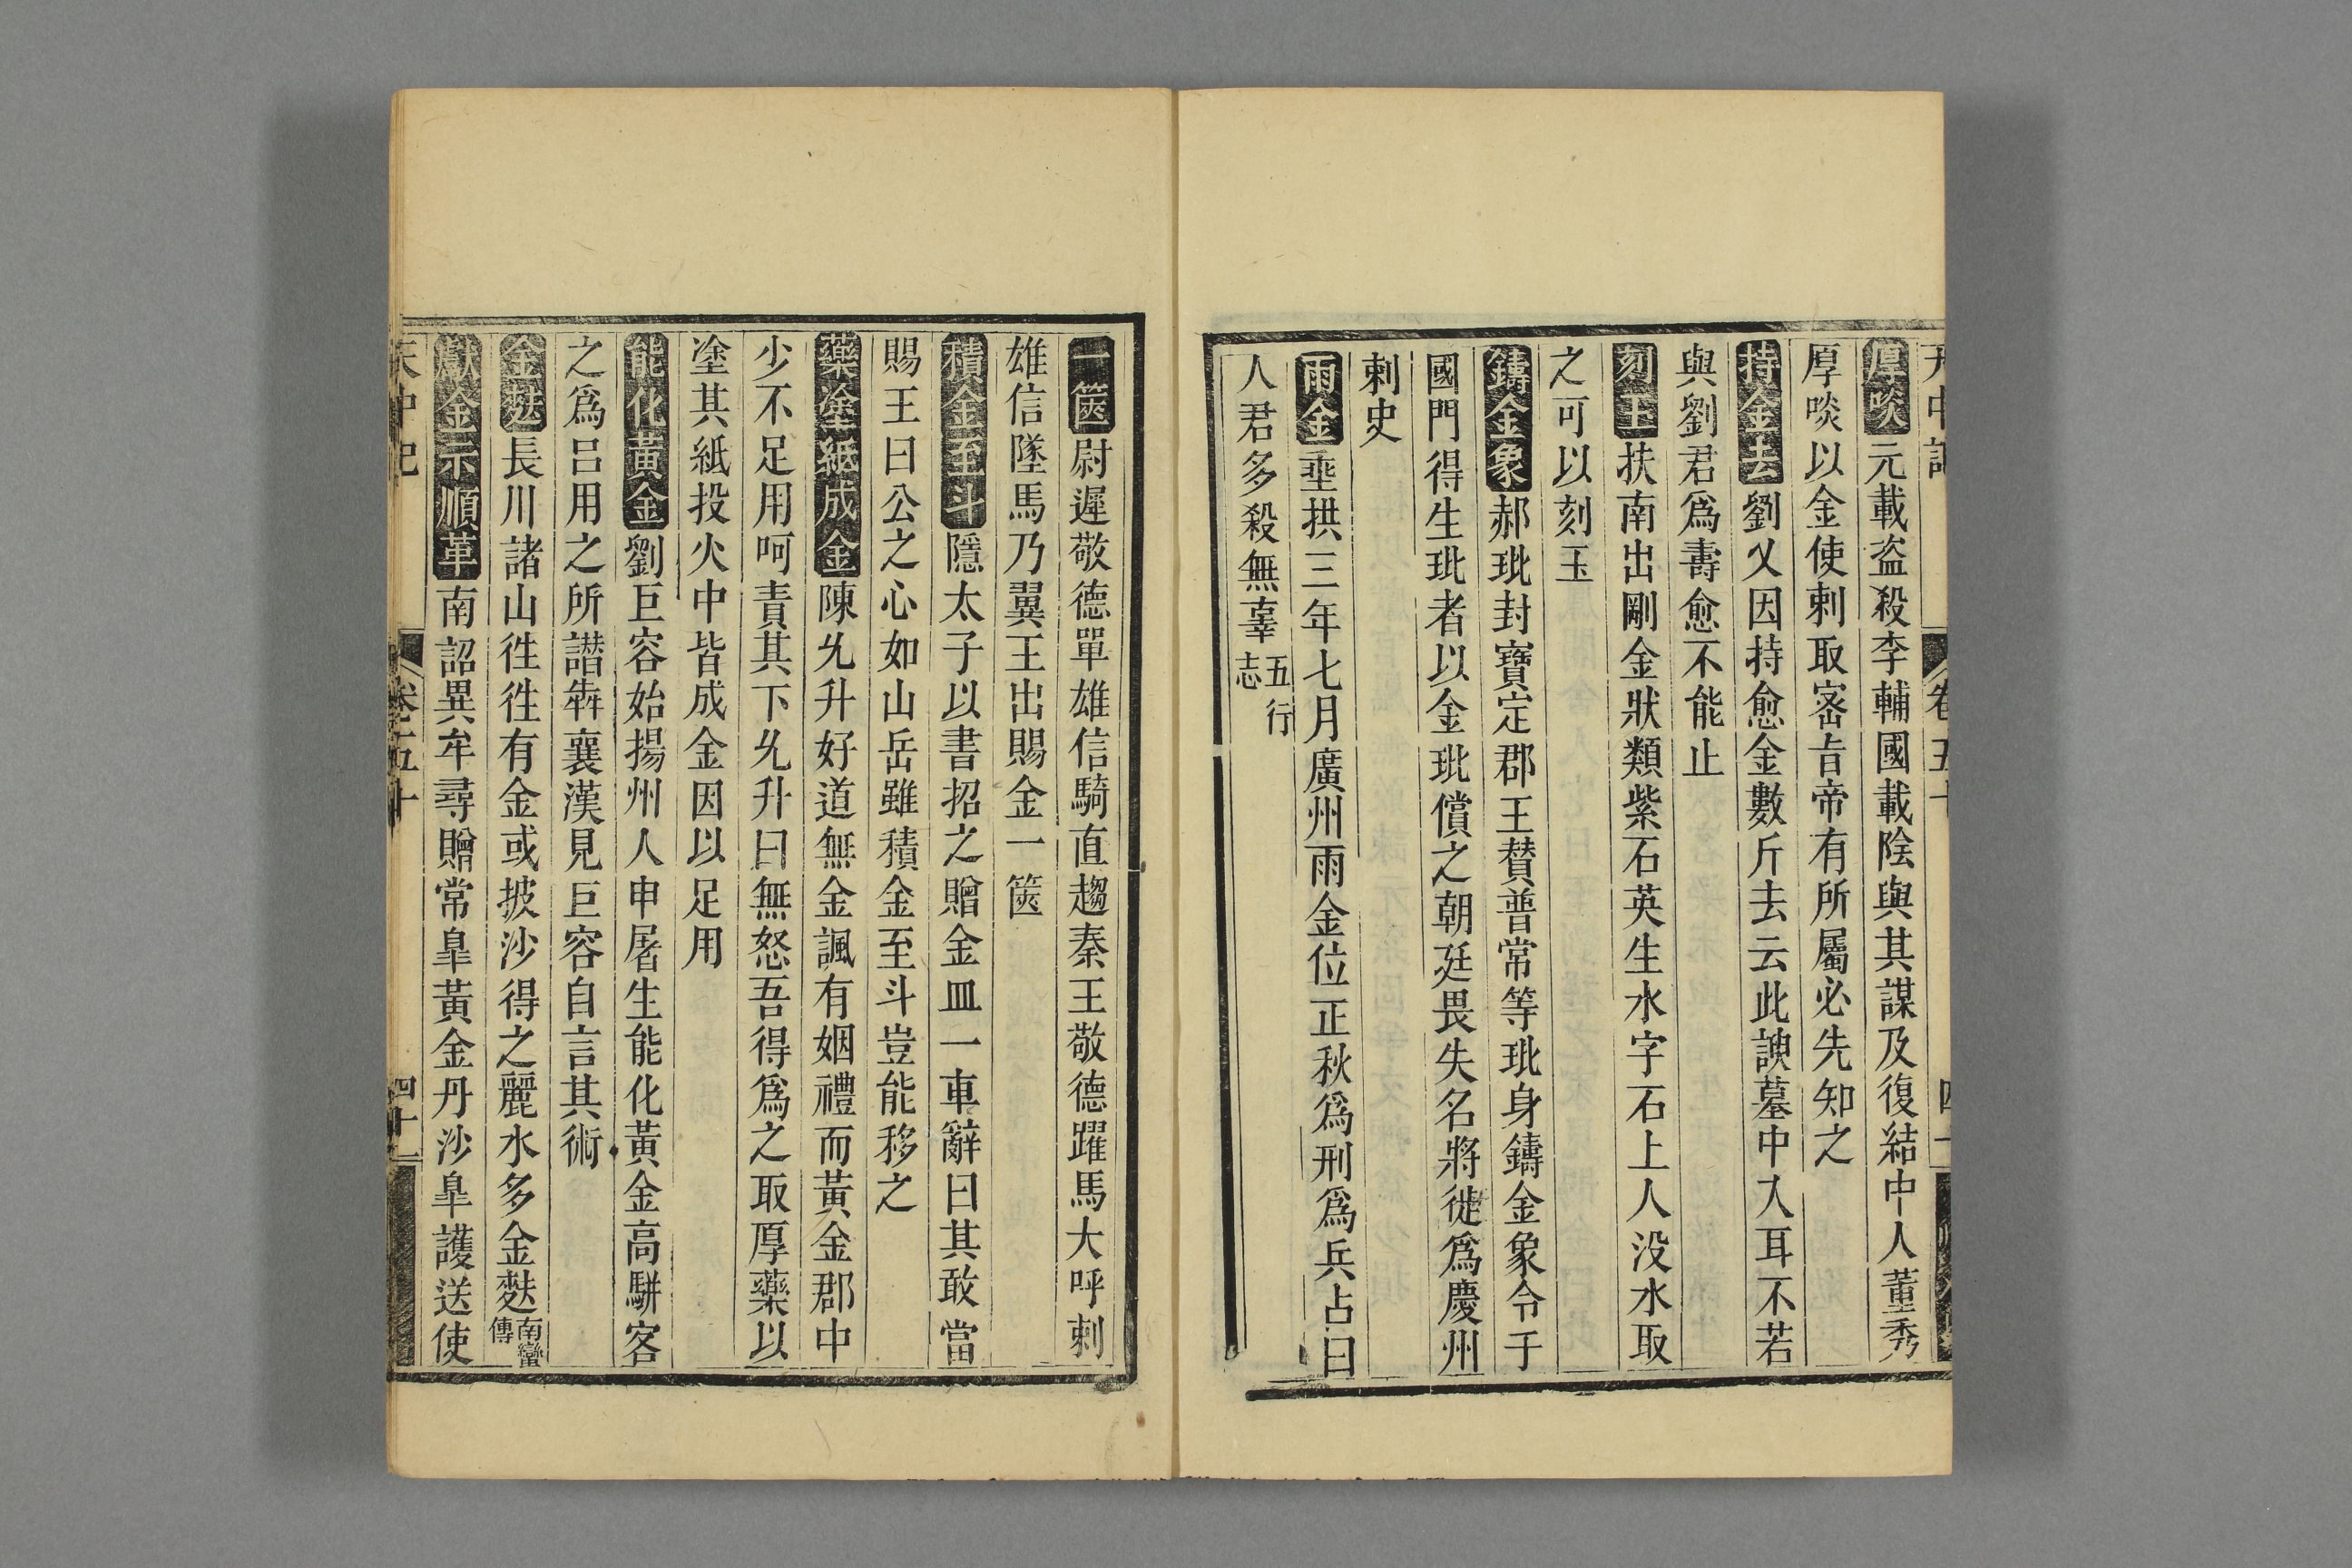 厚啖元載盜殺李輔國載陰與其謀及復結中人董秀
厚啖以金使刺取密旨帝有所屬必先知之
持金去劉乂因持愈金數斤去云此諛墓中人耳不若
與劉君爲壽愈不能止
刻玉扶南出剛金狀類紫石英生水字石上人没水取
之可以刻玉
鑄金象郝玼封寶定郡王賛普常等玼身鑄金象令于
國門得生玼者以金玼償之朝廷畏失名將徙爲慶州
刺史
雨金垂拱三年七月廣州雨金位正秋爲刑爲兵占曰
人君多殺無辜五行志
一篋尉遲敬德單雄信騎直趨秦王敬德躍馬大呼刺
雄信墜馬乃翼王出賜金一篋
積金至斗隱太子以書招之贈金皿一車辭曰其敢當
賜王曰公之心如山岳雖積金至斗豈能移之
藥塗紙成金陳允升好道無金諷有姻禮而黃金郡中
少不足用呵責其下允升曰無怒吾得爲之取厚藥以
塗其紙投火中皆成金因以足用
能化黃金劉巨容始揚州人申屠生能化黃金高駢客
之爲呂用之所譖犇襄漢見巨容自言其術
金麩長川諸山徃徃有金或披沙得之麗水多金麩南蠻傳
獻金示順革南詔異牟尋贈常臯黃金丹沙臯護送使
天中記 卷之五十 四十一